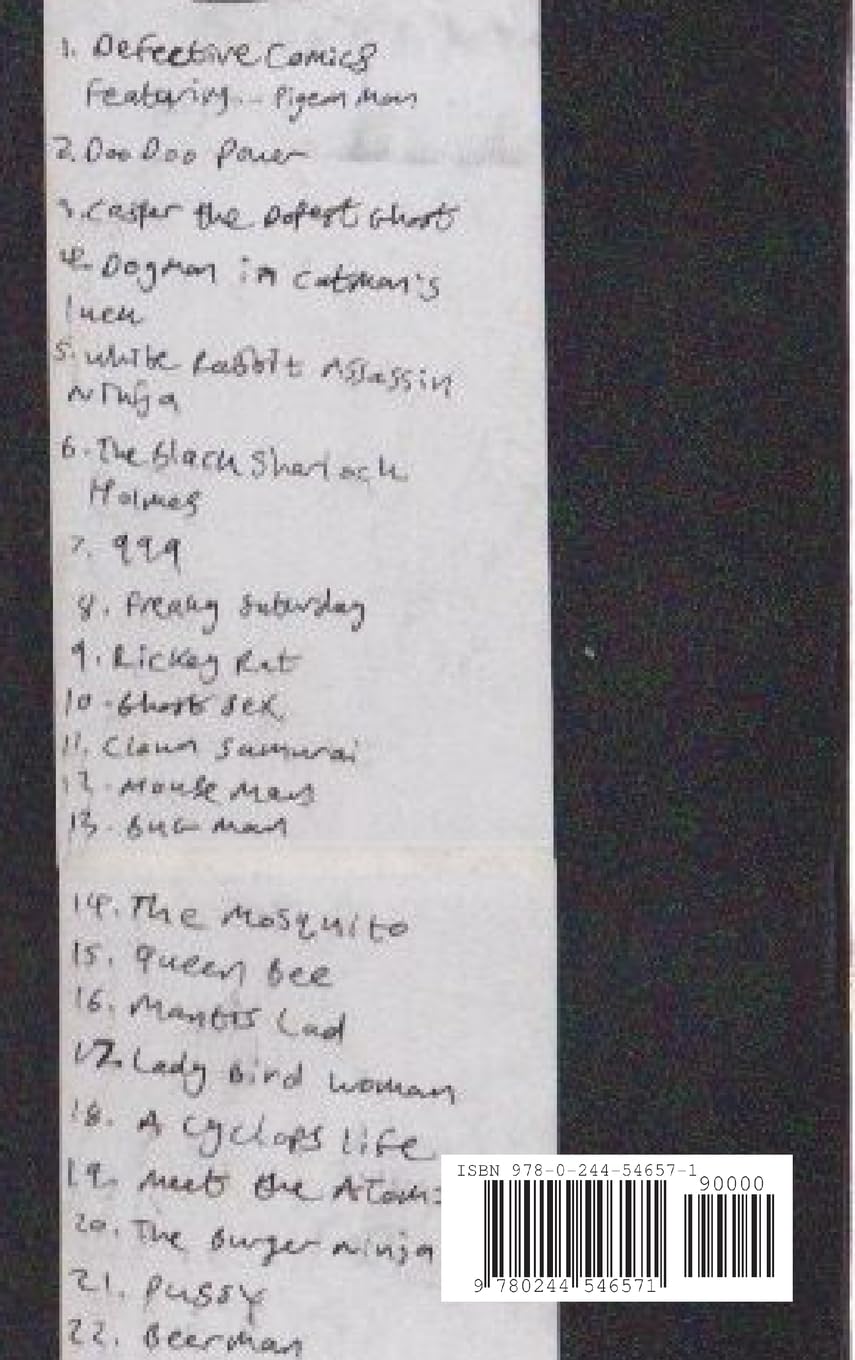 1. Defective Comics
Featuring... Pigeon Man
2. Doo Doo Power
3. Casper the Dopest Ghost
4. Dogman in Catman's
5. White Rabbit Assassin
Ninja
6. The Black Sherlock
Holmes
7. 999
8. Freaky Saturday
9. Rickey Rat
10. Ghost Sex
11. Clown Samurai
12. Mouse Man
13. Bug Man
14. The Mosquito
15. Queen Bee
16. Mantis Lad
17. Lady Bird Woman
18. A Cyclops Life
19. Meet the Atoms
20. The Burger Ninja
21. Pussy
22. Beerman
ISBN 978-0-244-54657-1
90000
9 780244 546571